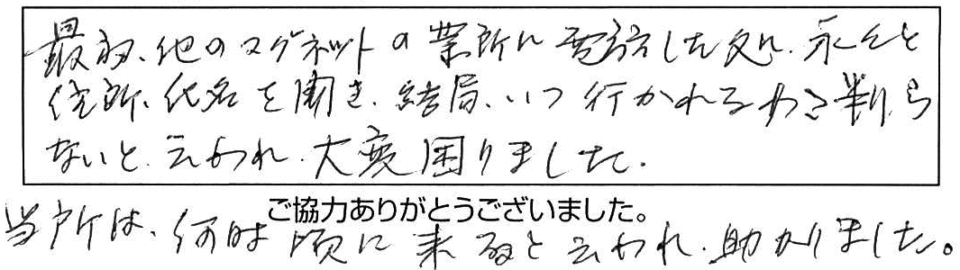 最初、他のマグネットの業所に電話した処、永々と
住所、氏名を聞き、結局、いつ行かれるか判ら
ないと、云われ、大変困りました。
ご協力ありがとうございました。
当所は、何時頃に来ると云われ、助かりました。